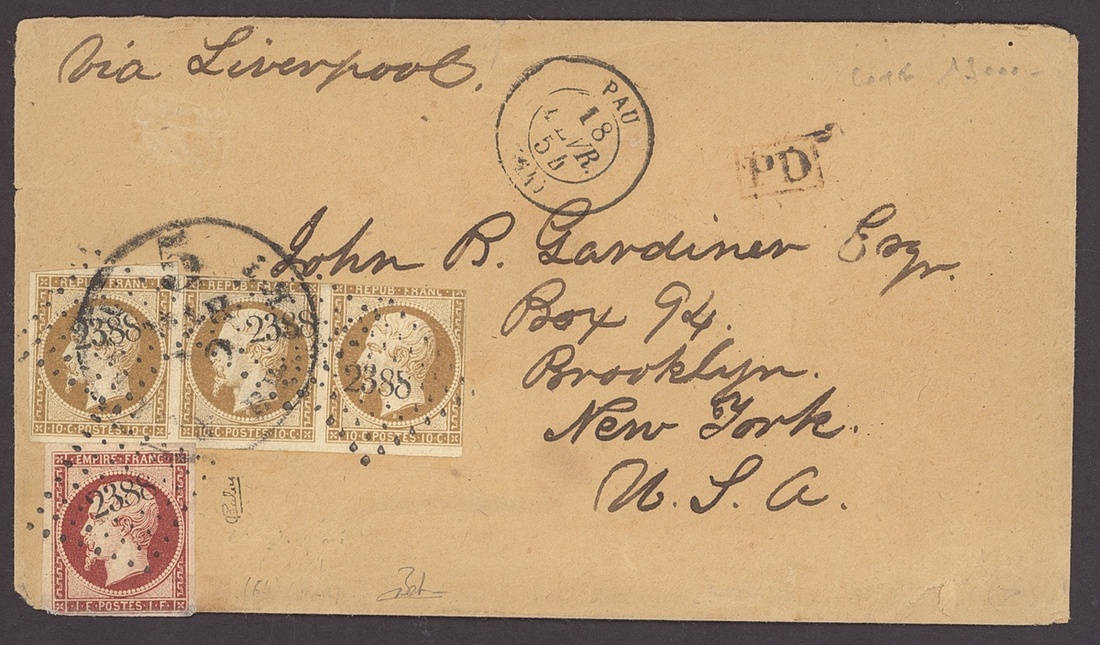 Via Liverpool.
PAU
18
FEVR.
54
(64)
PD
John B. Gardiner Esqr.
Box 94.
Brooklyn.
New York.
U. S. A.
5
REPUB FRANC
REPUB FRANC
REPUB FRANC
2388
2388
2388
10 C POSTES 10 C
10 C POSTES 10 C
10 C POSTES 10 C
EMPIRE FRANC
2388
1 F POSTES 1 F